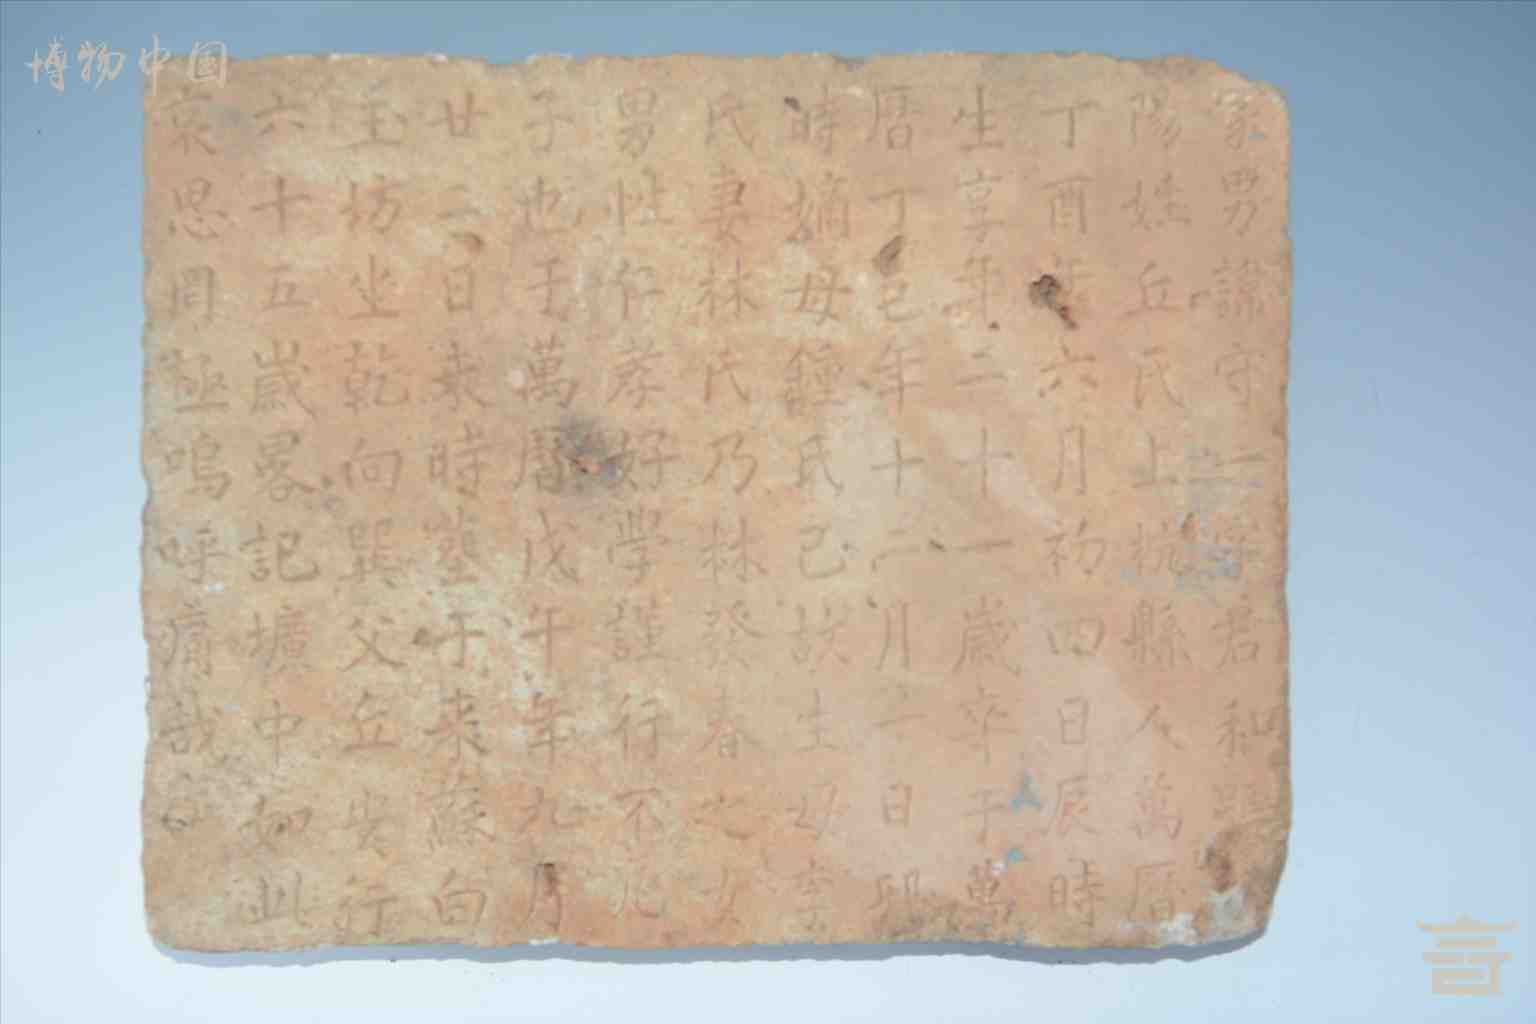 家男諱守一字君和
陽姓丘氏上杭縣人萬曆
丁酉年六月初四日辰時
生享年二十一歲卒于萬
曆丁巳年十二月十一日卯
時嫡母鍾氏已故生母李
氏妻林氏乃林發春之女
男性仁孝好學謹行不凡
子也于萬曆戊午年九月
廿二日未時塟于來蘇白
玉坊坐乾向巽父丘安行
六十五歲畧記壙中如此
哀思罔極嗚呼痛哉
博物中國